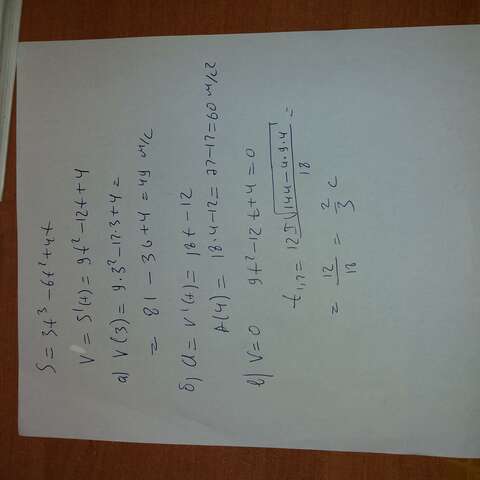 S = 3t³ - 6t² + 4t
V = S'(t) = 9t² - 12t + 4
а) V(3) = 9·3² - 12·3 + 4 =
= 81 - 36 + 4 = 49 м/с
б) a = V'(t) = 18t - 12
A(4) = 18·4 - 12 = 72 - 12 = 60 м/с²
в) V = 0 9t² - 12t + 4 = 0
t₁,₂ = 12 ± √144 - 4·9·4 / 18 =
= 12/18 = 2/3 с